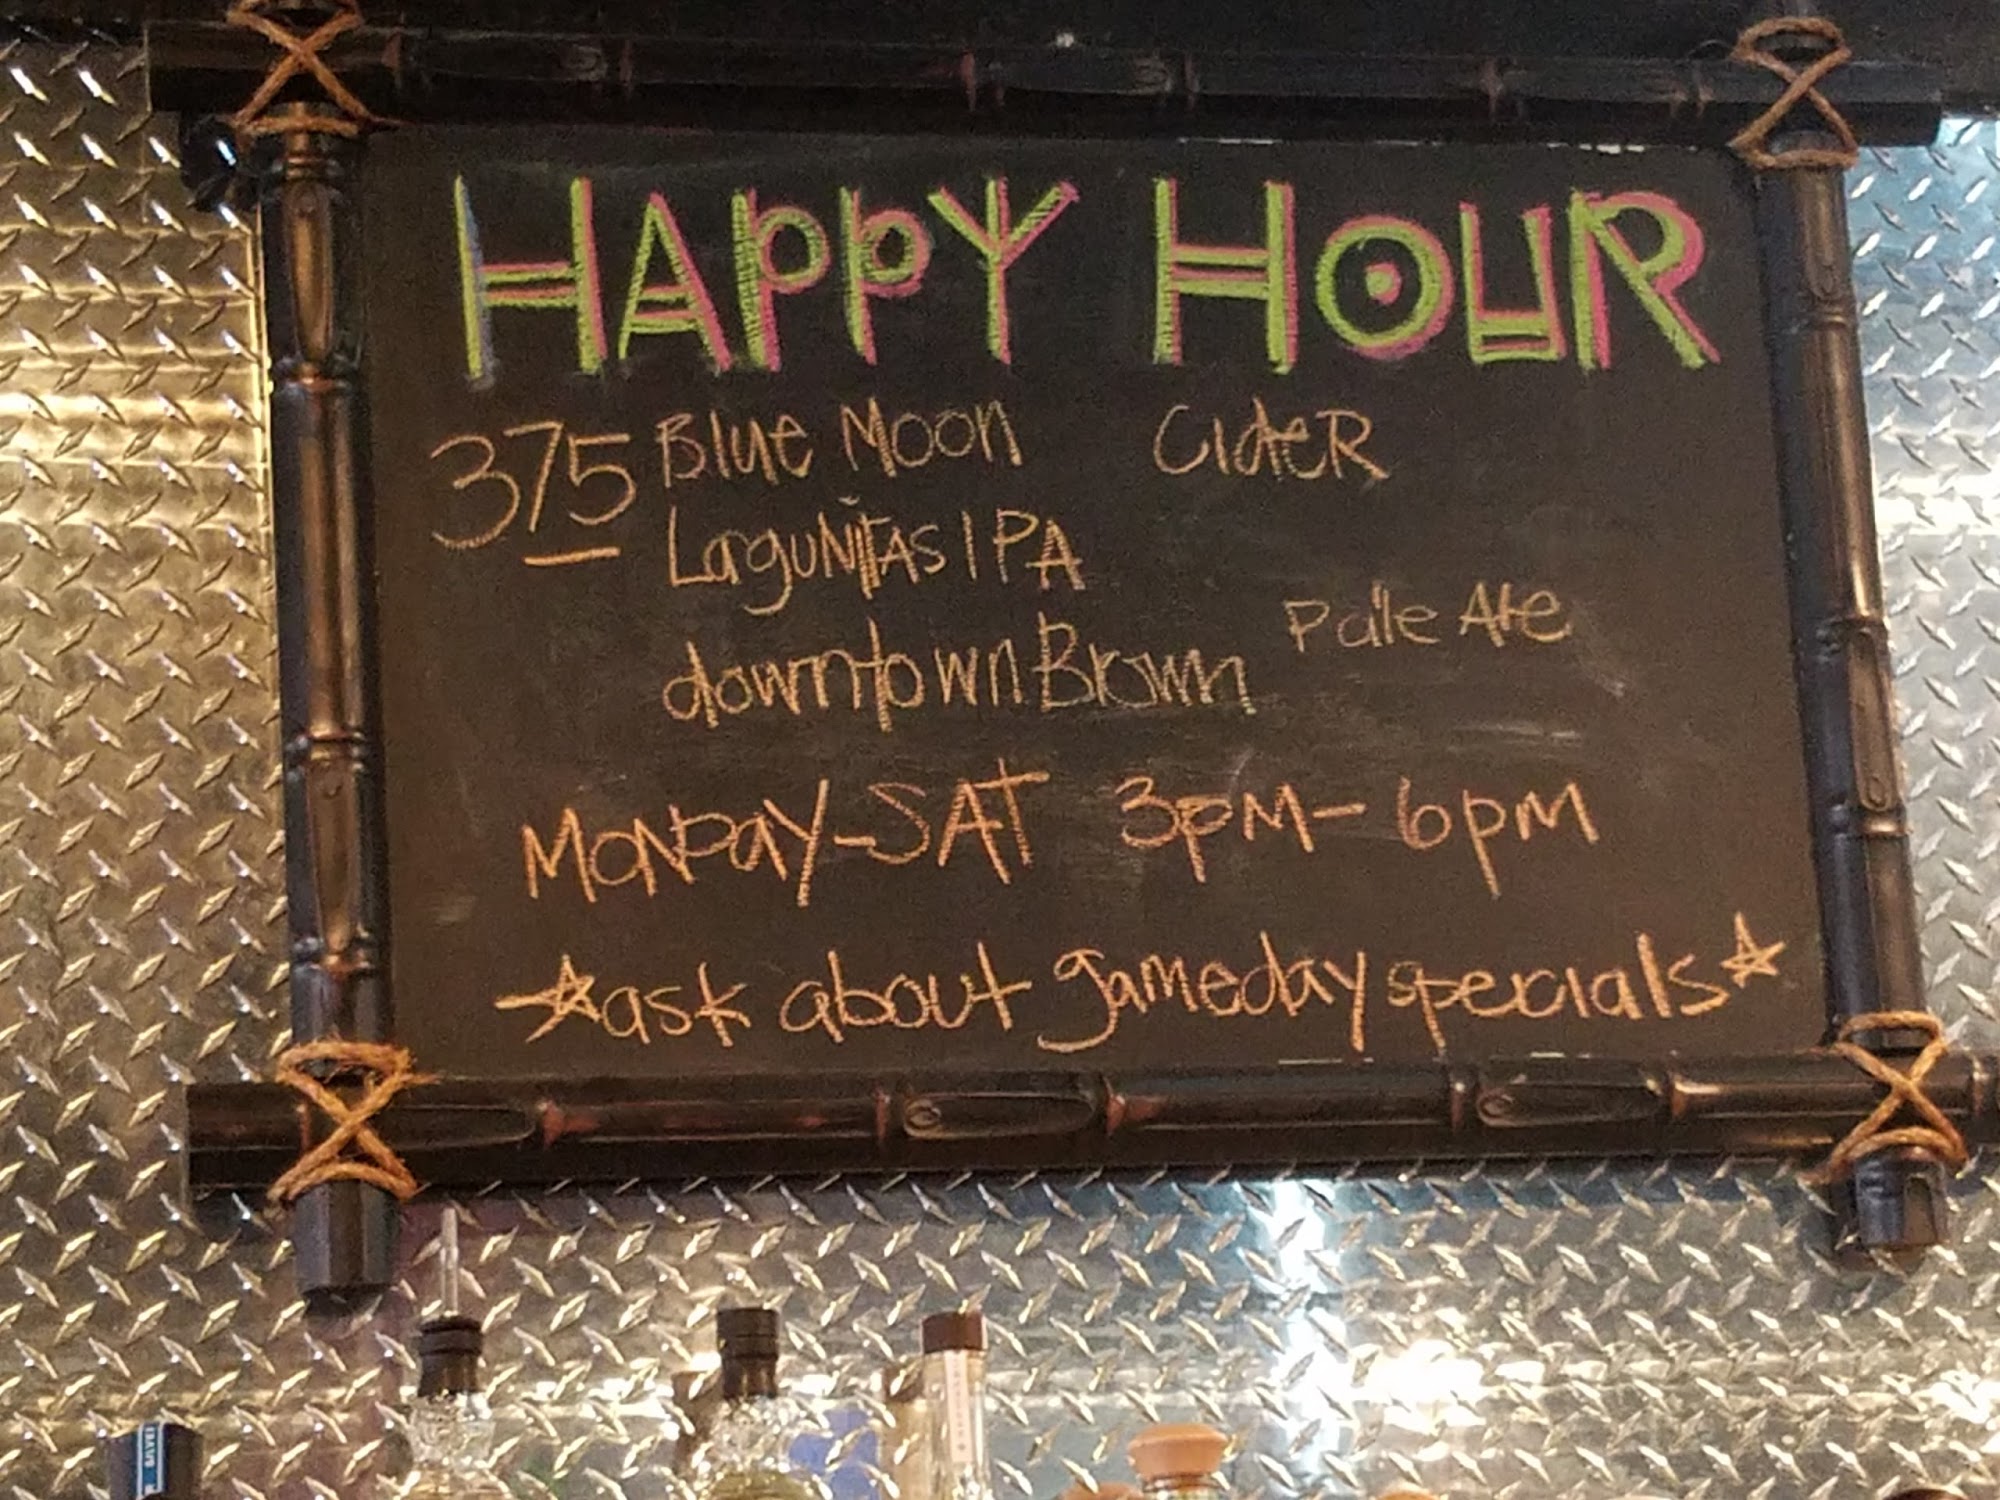 HAPPY HOUR
375 Blue Moon Cider
Lagunitas IPA
downtown Brown Pale Ale
Monday-SAT 3pm-6pm
☆ask about gameday specials☆